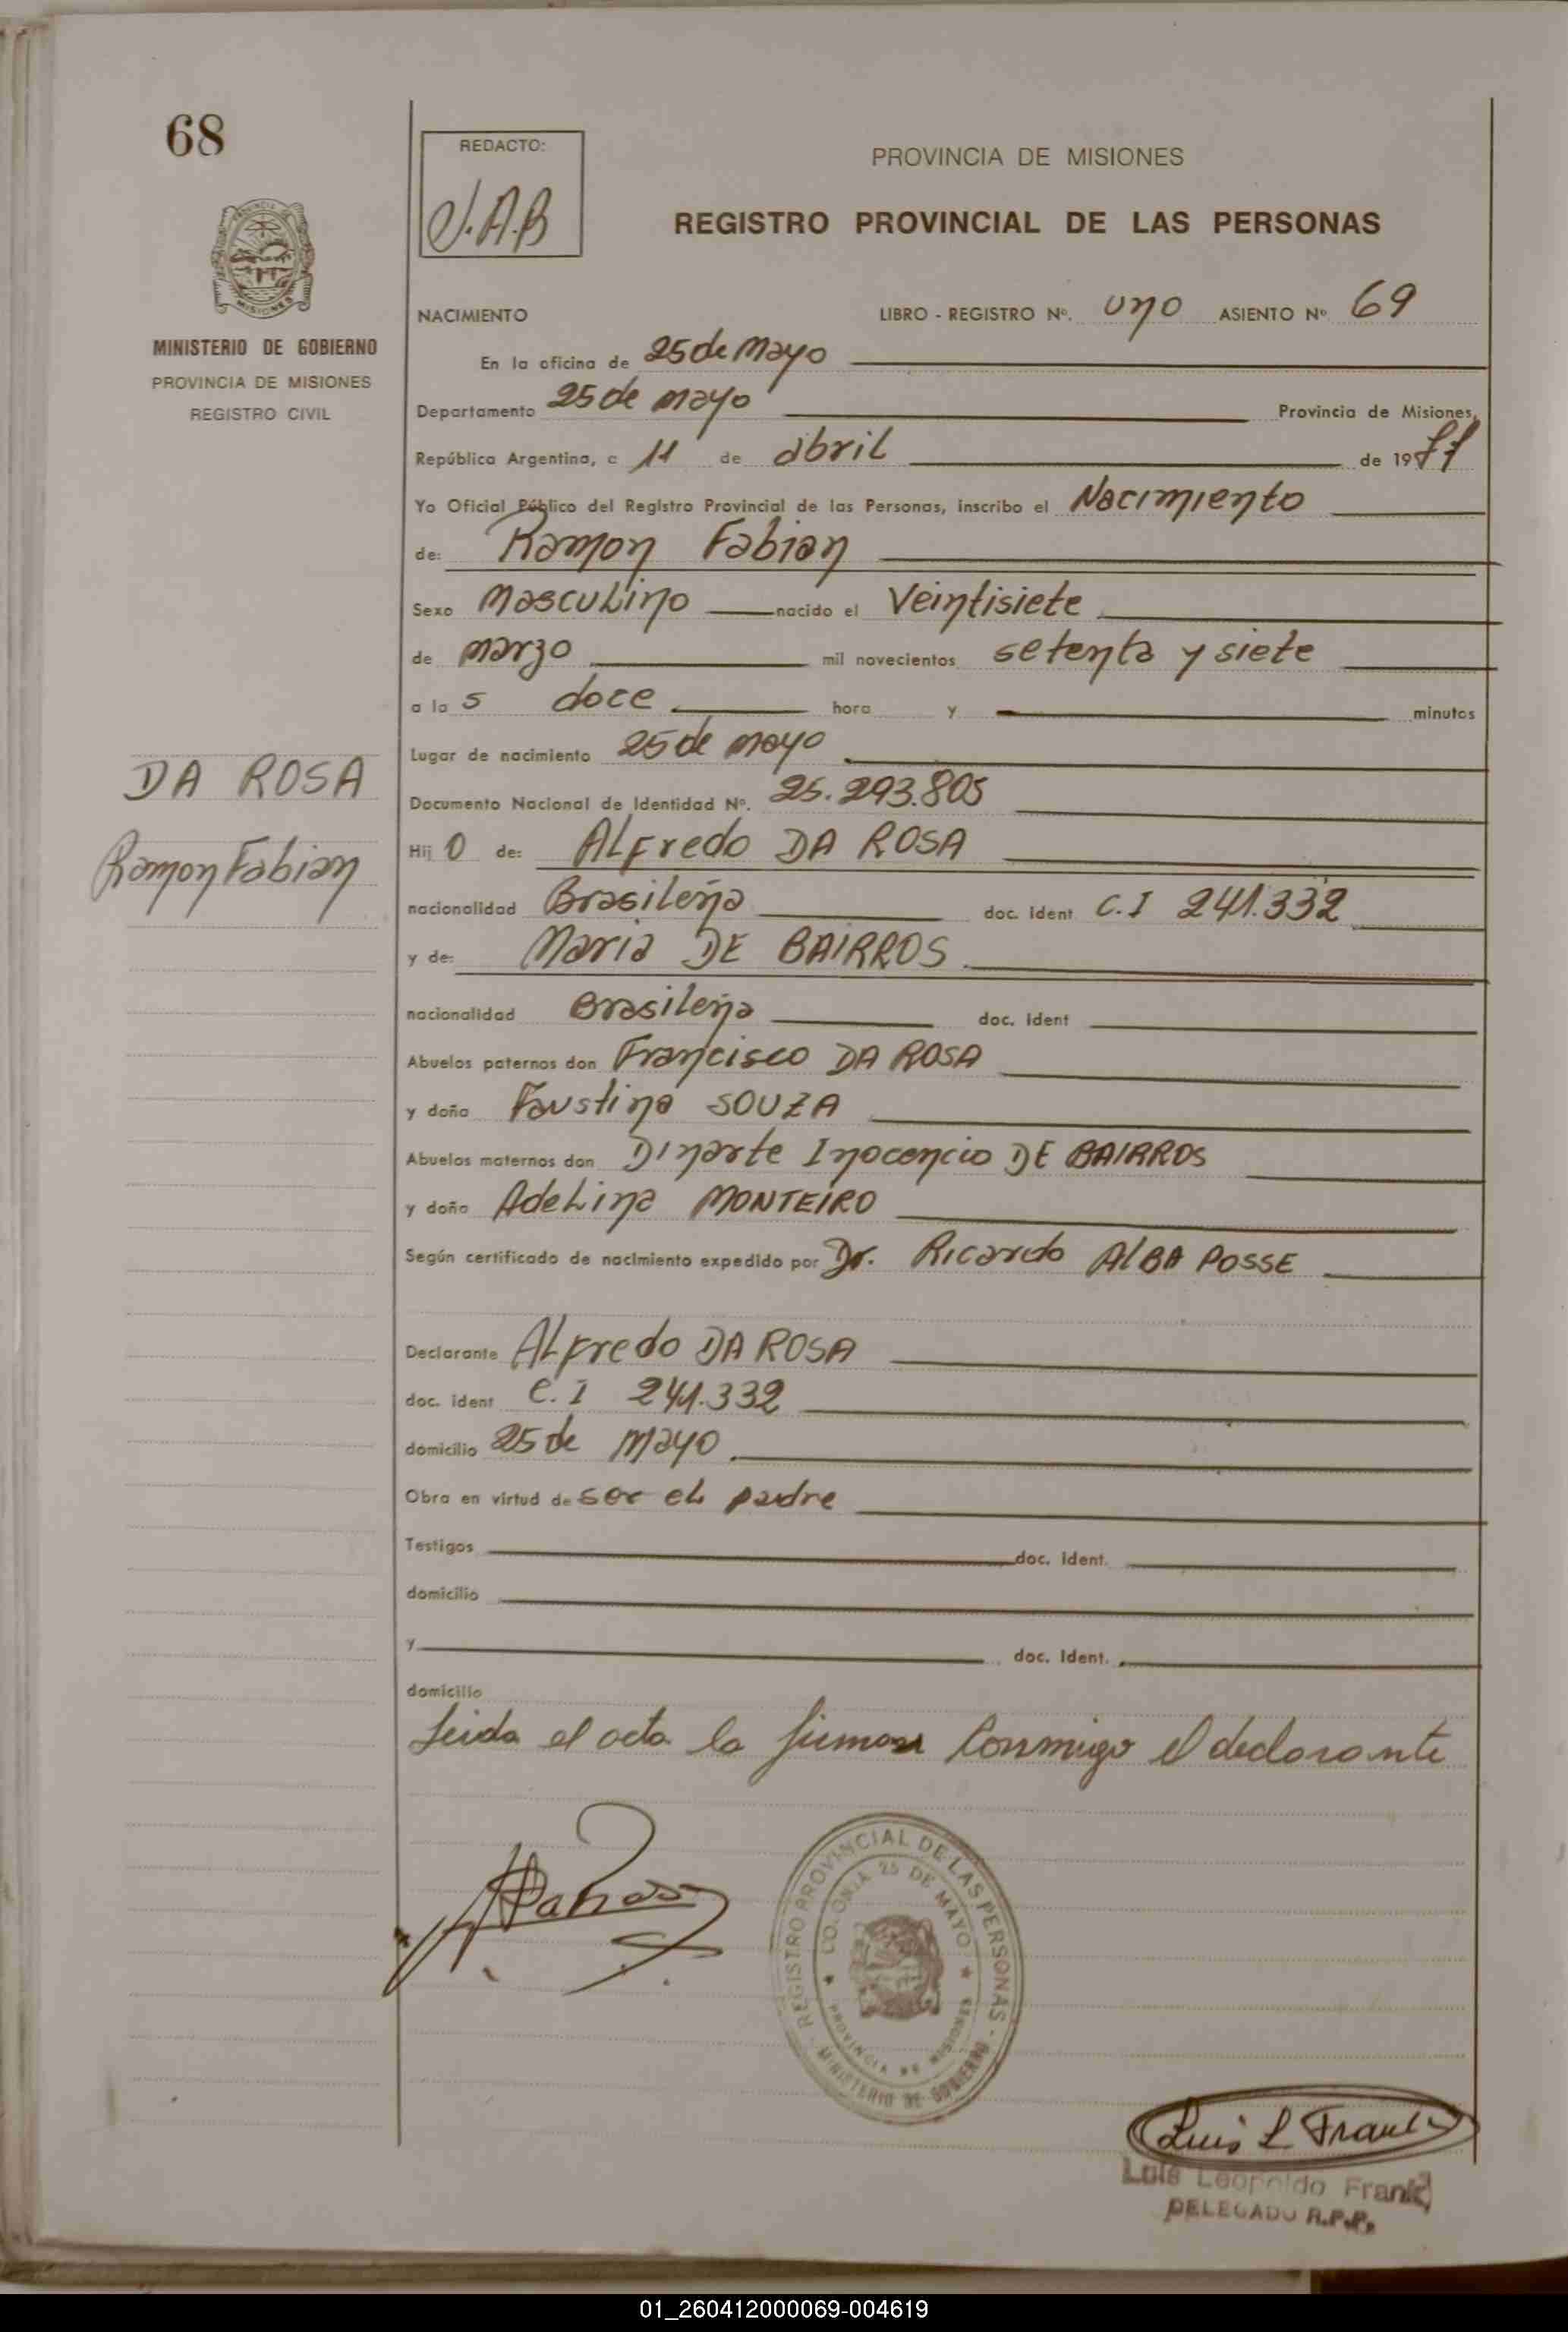 68
MINISTERIO DE GOBIERNO
PROVINCIA DE MISIONES
REGISTRO CIVIL
DA ROSA
Ramon Fabian
REDACTO:
J.A.B
PROVINCIA DE MISIONES
REGISTRO PROVINCIAL DE LAS PERSONAS
NACIMIENTO LIBRO - REGISTRO Nº. uno ASIENTO Nº 69
En la oficina de 25 de Mayo
Departamento 25 de mayo Provincia de Misiones,
República Argentina, a 11 de abril de 1977
Yo Oficial Público del Registro Provincial de las Personas, inscribo el Nacimiento
de: Ramon Fabian
Sexo Masculino nacido el Veintisiete
de marzo mil novecientos setenta y siete
a la s doce hora y minutos
Lugar de nacimiento 25 de mayo
Documento Nacional de Identidad Nº. 25.293.805
Hij o de: Alfredo DA ROSA
nacionalidad Brasileña doc. ident C.I 241.332
y de: Maria DE BAIRROS
nacionalidad Brasileña doc. ident
Abuelos paternos don Francisco DA ROSA
y doña Faustina SOUZA
Abuelos maternos don Dinarte Inocencio DE BAIRROS
y doña Adelina MONTEIRO
Según certificado de nacimiento expedido por Dr. Ricardo ALBA POSSE
Declarante Alfredo DA ROSA
doc. ident C.I 241.332
domicilio 25 de Mayo
Obra en virtud de ser el padre
Testigos doc. ident.
domicilio
y doc. ident.
domicilio
Leida el acta la firma conmigo el declarante
REGISTRO PROVINCIAL DE LAS PERSONAS
COLONIA 25 DE MAYO
PROVINCIA DE MISIONES
MINISTERIO DE GOBIERNO
Luis L Frank
Luis Leopoldo Frank
DELEGADO R.P.P.
01_260412000069-004619